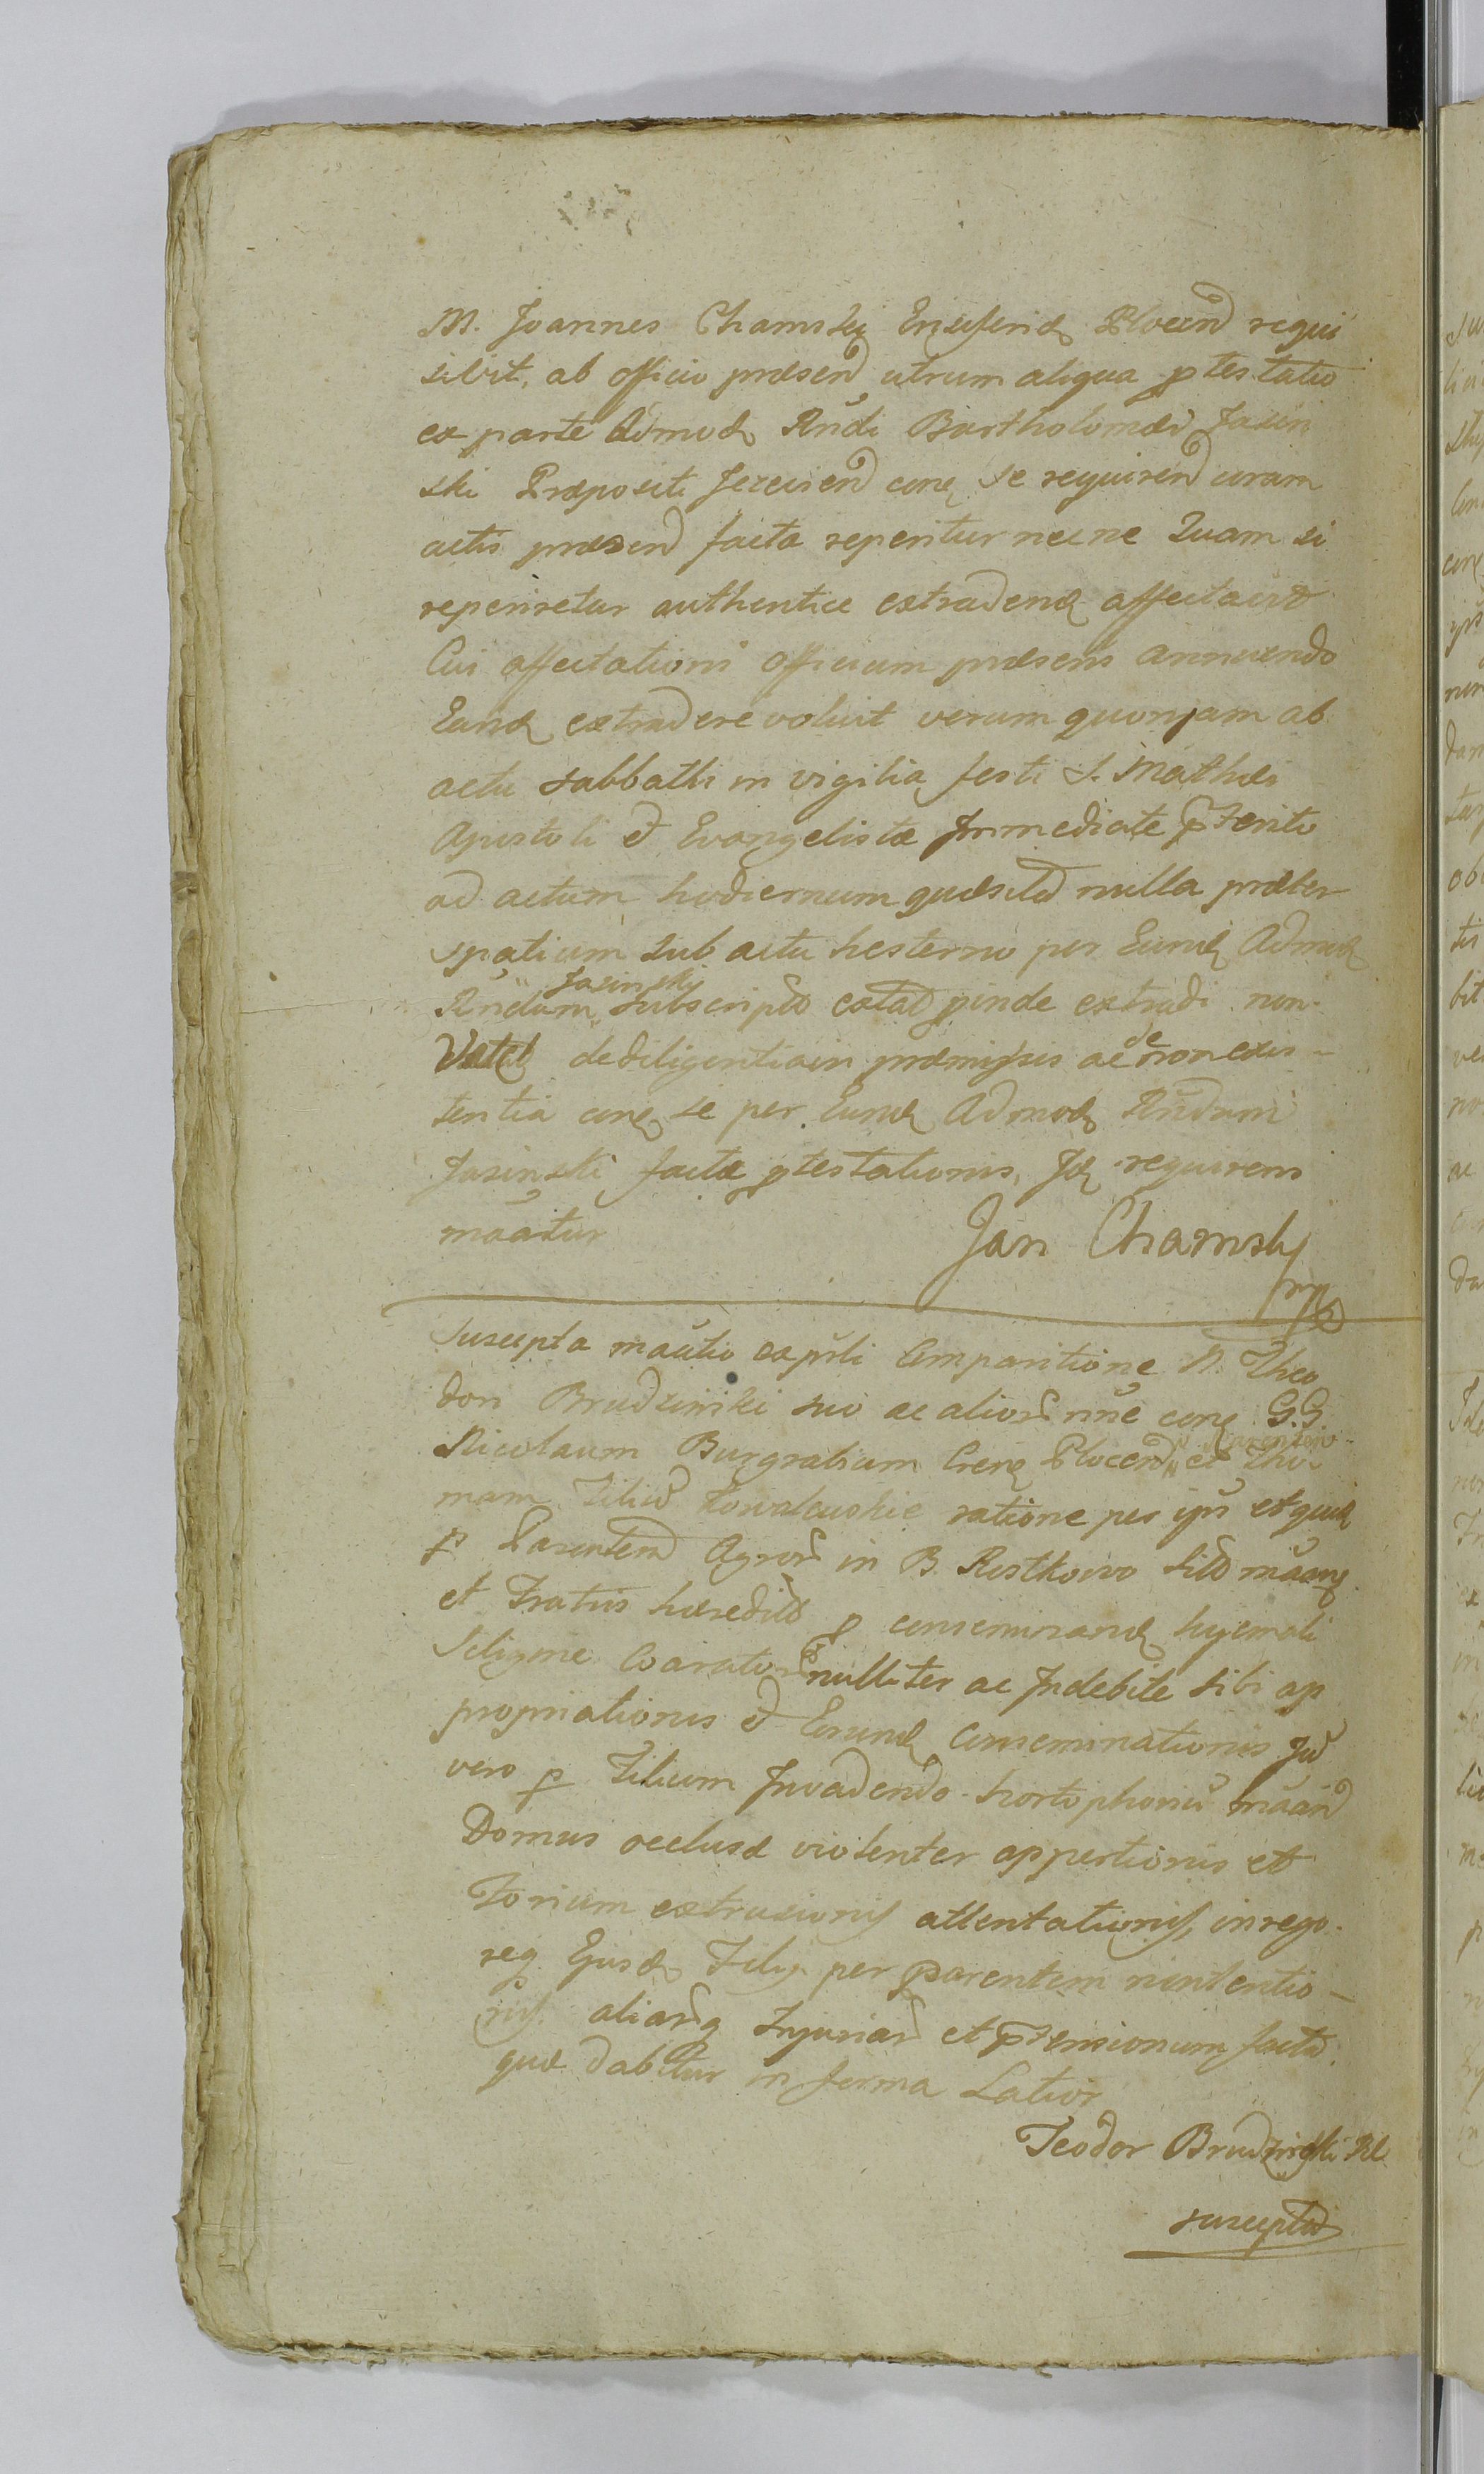 M. Joannes Chamski Ensiferid Plocen requi
sivit, ab officio præsen utrum aliqua ptestatio
ex parte Admod Rndi Bartholomæi Jasin
ski Præpositi Jezeiren cone se requiren coram
actis præsen facta reperitur necne Quam si
reperiretur authentice extradend affectavit
Cui affectationi officium præsens annuendo
Eand extradere voluit verum quonjam ab
actu sabbathi in vigilia festi S. Mathæi
Apostoli et Evangelistæ Immediate pterito
ad actum hodiernum quæsita nulla præter
spatium sub actu hesterno per Eund Admod
Rndum Jasinski subscripto extat pinde extradi non
de diligentia in præmissis ac de non exis-
tentia cone se per Eund Admod Rndum
Jasinski factæ ptestationis, Id requirens
maatur
Jan Chamsky
mp
Suscepta maatio expsti Comparitione N. Theo
dori Brudzinski suo ac alior nne cone G.G.
Nicolaum Burgrabium Cren Plocen Parentem et Tho-
mam Filiu Kowalewskie ratione per ips et quid
p Parentem Agror in B. Rostkowo sito maang
et Fratris hæredito p conseminand hyemali
Siligine Coarator nulliter ac Indebite sibi ap
propriationis et Eorund Conseminationis Id
vero p Filium Invadendo hortophoniu maan
Domus occlusæ violenter appertionis et
Forium extrusionis attentationis, in rego
req Ejusd Filij per parentem nontentio-
nis aliarq Injuriar et ptensionum facta.
quæ dabitur in forma Latior
Teodor Brudzinski
susceptt